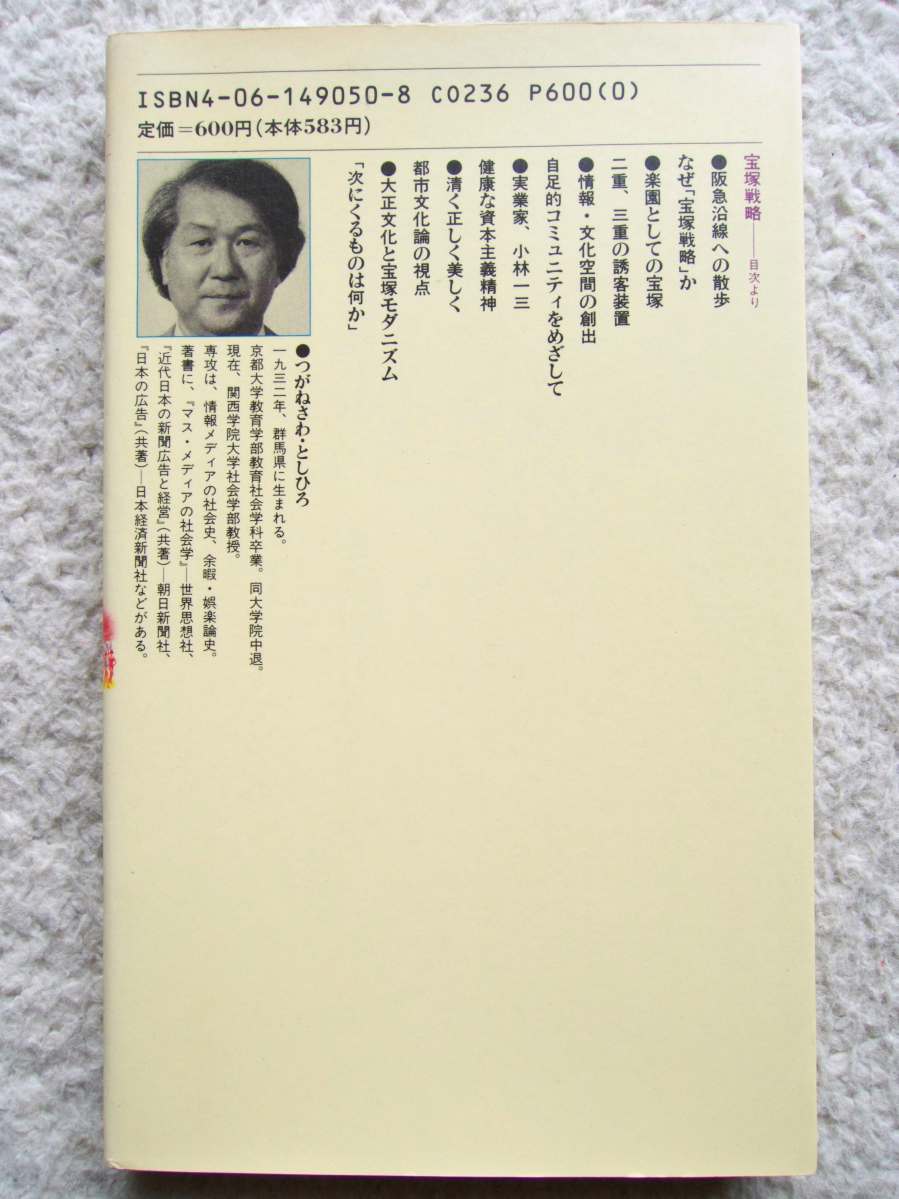 ISBN4-06-149050-8 C0236 P600(0)
定価=600円(本体583円)
宝塚戦略——目次より
●阪急沿線への散歩
なぜ「宝塚戦略」か
●楽園としての宝塚
二重、三重の誘客装置
●情報・文化空間の創出
自足的コミュニティをめざして
●実業家、小林一三
健康な資本主義精神
●清く正しく美しく
都市文化論の視点
●大正文化と宝塚モダニズム
「次にくるものは何か」
●つがねさわ・としひろ
一九三二年、群馬県に生まれる。
京都大学教育学部教育社会学科卒業。同大学院中退。
現在、関西学院大学社会学部教授。
専攻は、情報メディアの社会史、余暇・娯楽論史。
著書に、『マス・メディアの社会学』—世界思想社、
『近代日本の新聞広告と経営』(共著)—朝日新聞社、
『日本の広告』(共著)—日本経済新聞社などがある。